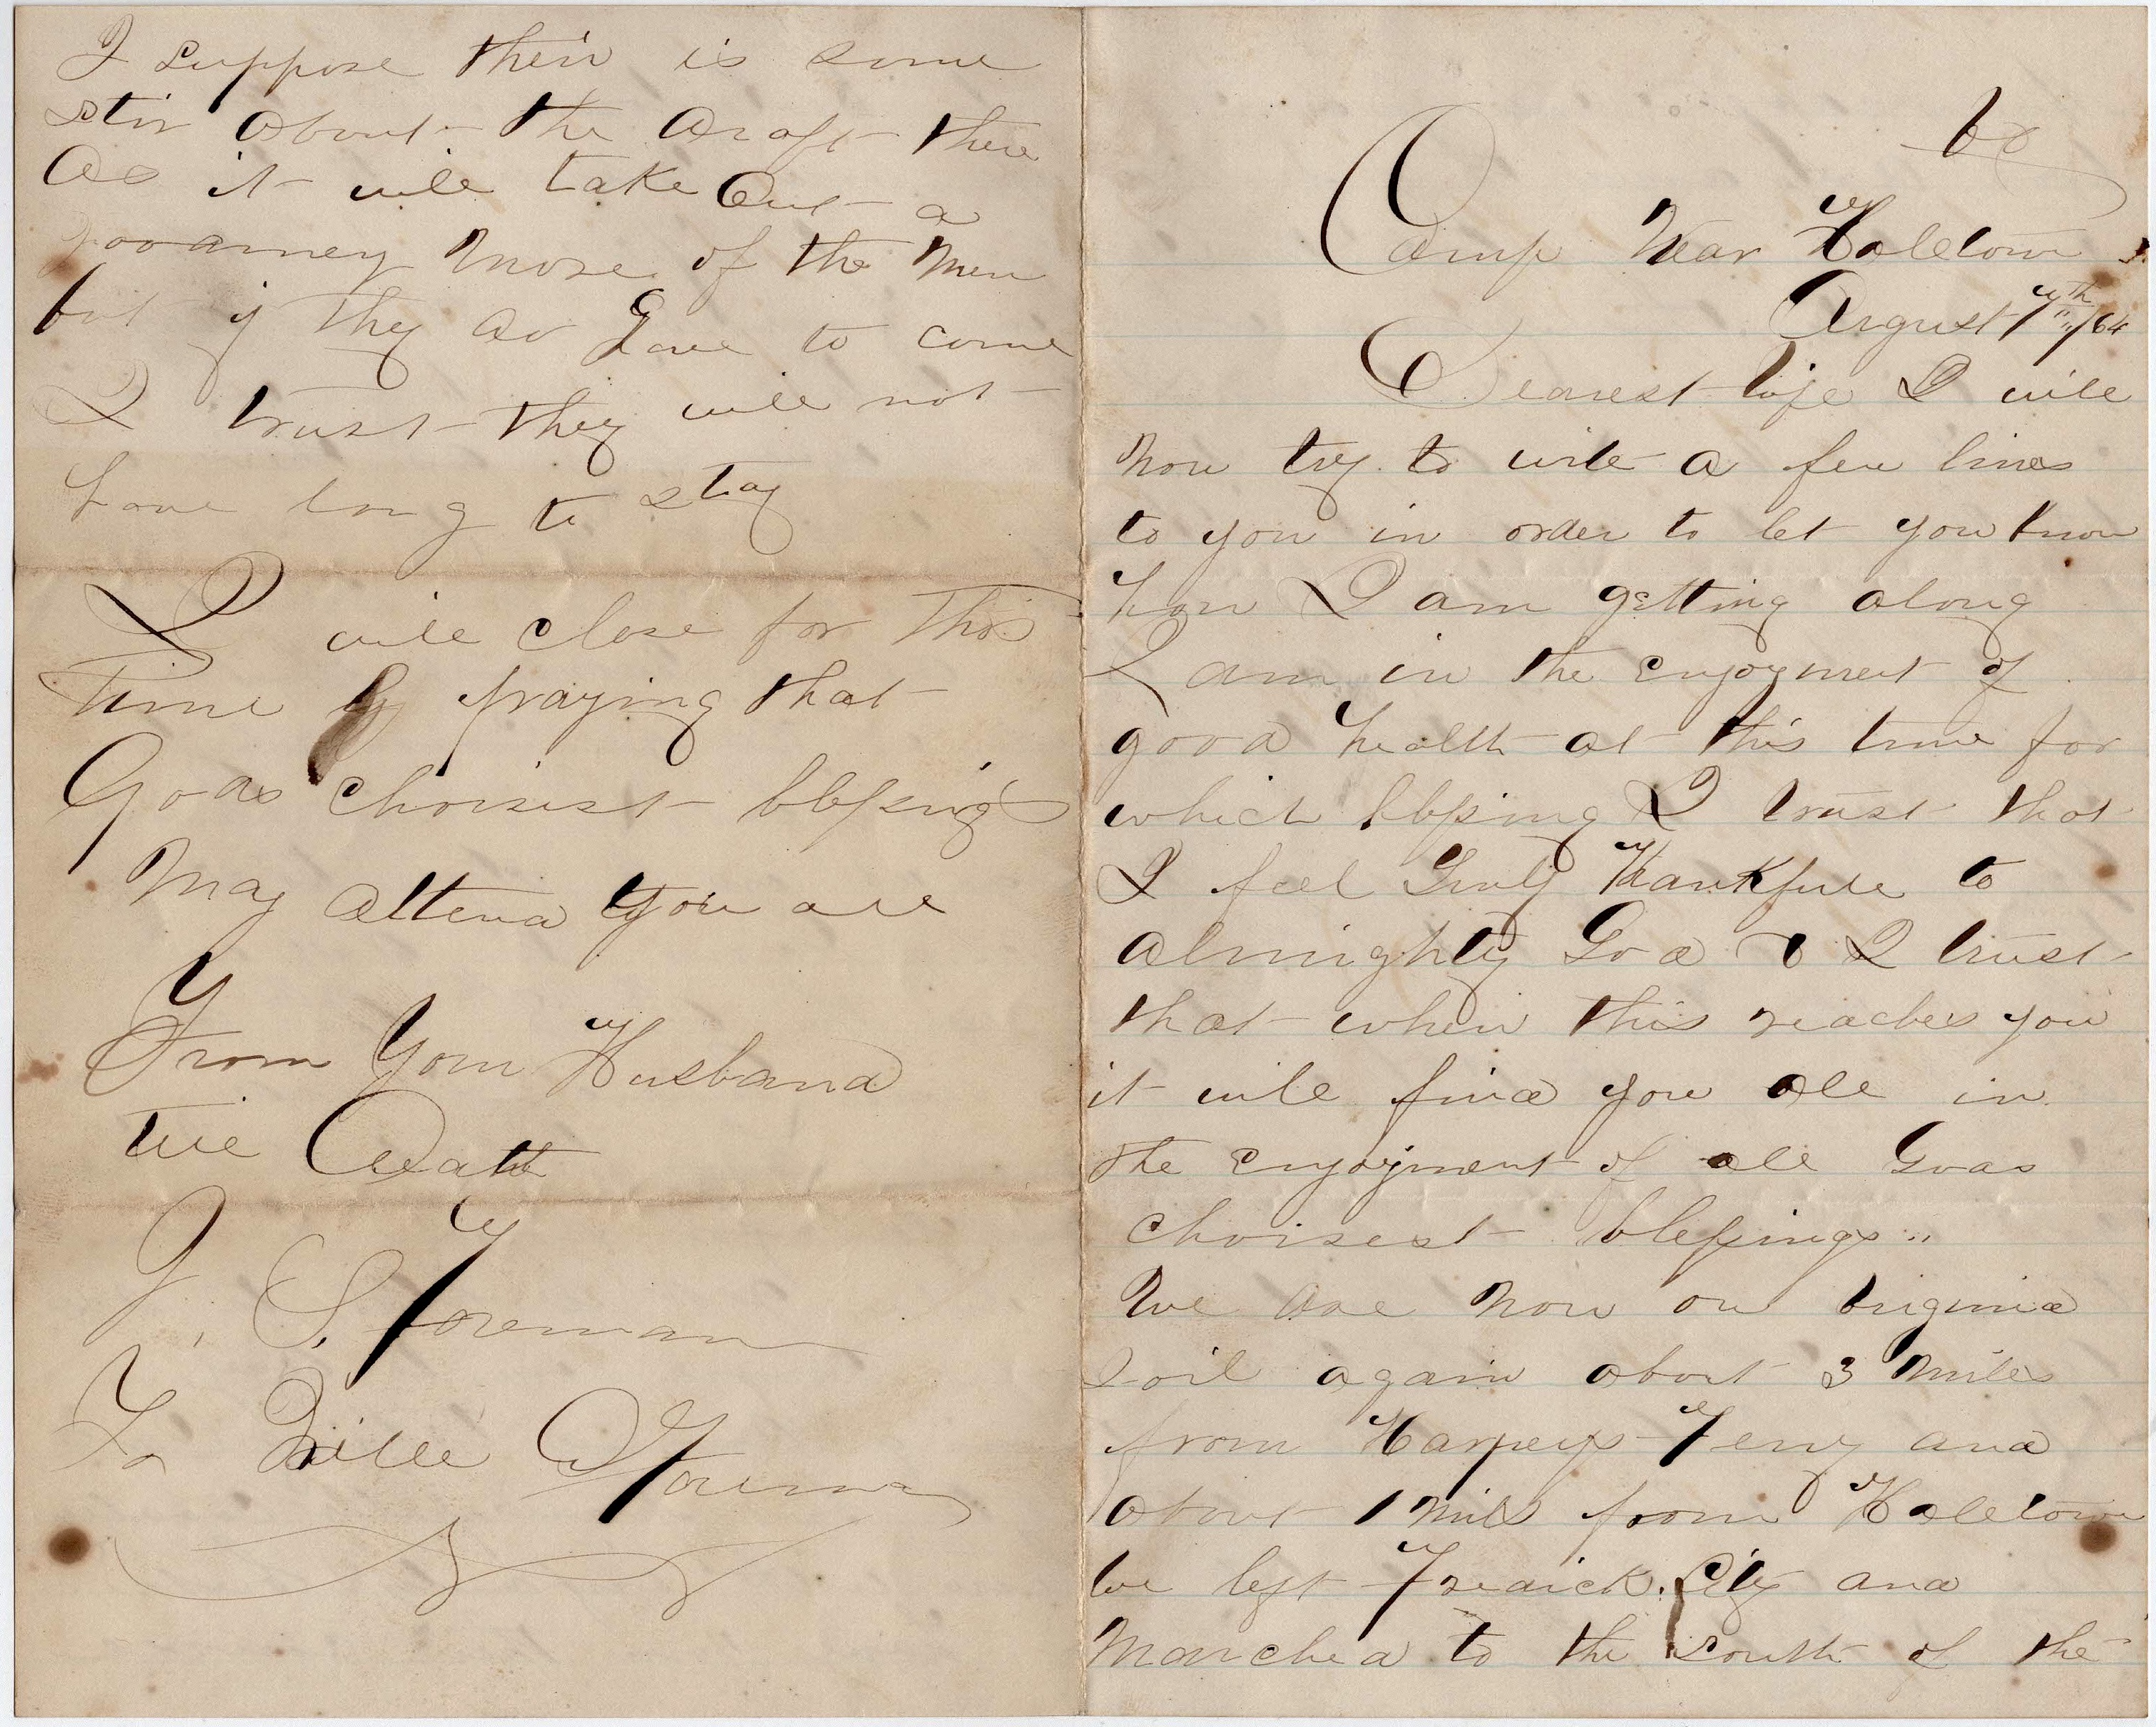 Camp Near Halltown
August 7th /64
Dearest wife I will
now try to write a few lines
to you in order to let you know
how I am getting along
I am in the enjoyment of
good health at this time for
which blessing I trust that
I feel truly thankfull to
Almighty God & I trust
that when this reaches you
it will find you all in
the enjoyment of all Gods
choisest blessings
We are now on virginia
soil again about 3 miles
from Harpers Ferry and
about 1 mile from Halltown
we left Fredrick City and
Marched to the South of the
I suppose their is some
stir about the draft there
As it will take Out a
good many more of the Men
but if they do have to come
I trust they will not
have long to stay
I will close for this
time by praying that
Gods choisest blessings
May attend you all
From Your Husband
till Death
J. S. Foreman
To